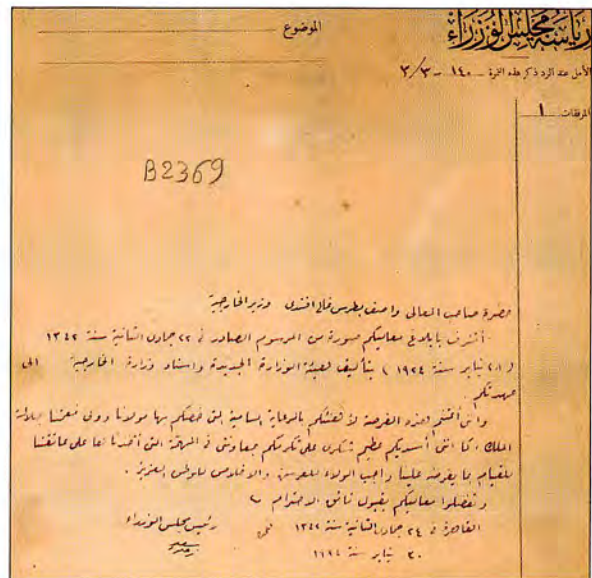 رياسة مجلس الوزراء
الموضوع
الأمل عند الرد ذكر هذه النمرة ١٤٠ - ٣/٣
المرفقات ١
B2369
حضرة صاحب المعالى واصف بطرس غالى افندى وزير الخارجية
أتشرف بابلاغ معاليكم صورة من المرسوم الصادر فى ٢٢ جمادى الثانية سنة ١٣٤٢
(٢٨ يناير سنة ١٩٢٤) بتأليف هيئة الوزارة الجديدة واسناد وزارة الخارجية الى
عهدتكم.
وانى أغتنم هذه الفرصة لأهنئكم بالرعاية السامية التى خصكم بها مولانا وولى نعمتنا جلالة
الملك، كما أننى أسديكم عظيم شكرى على تكرمكم بمعاونتى فى المهمة التى أخذناها على عاتقنا
للقيام بما يفرضه علينا واجب الولاء للعرش والاخلاص للوطن العزيز.
وتفضلوا معاليكم بقبول فائق الاحترام
القاهرة فى ٢٤ جمادى الثانية سنة ١٣٤٢
رئيس مجلس الوزراء
٣٠ يناير سنة ١٩٢٤